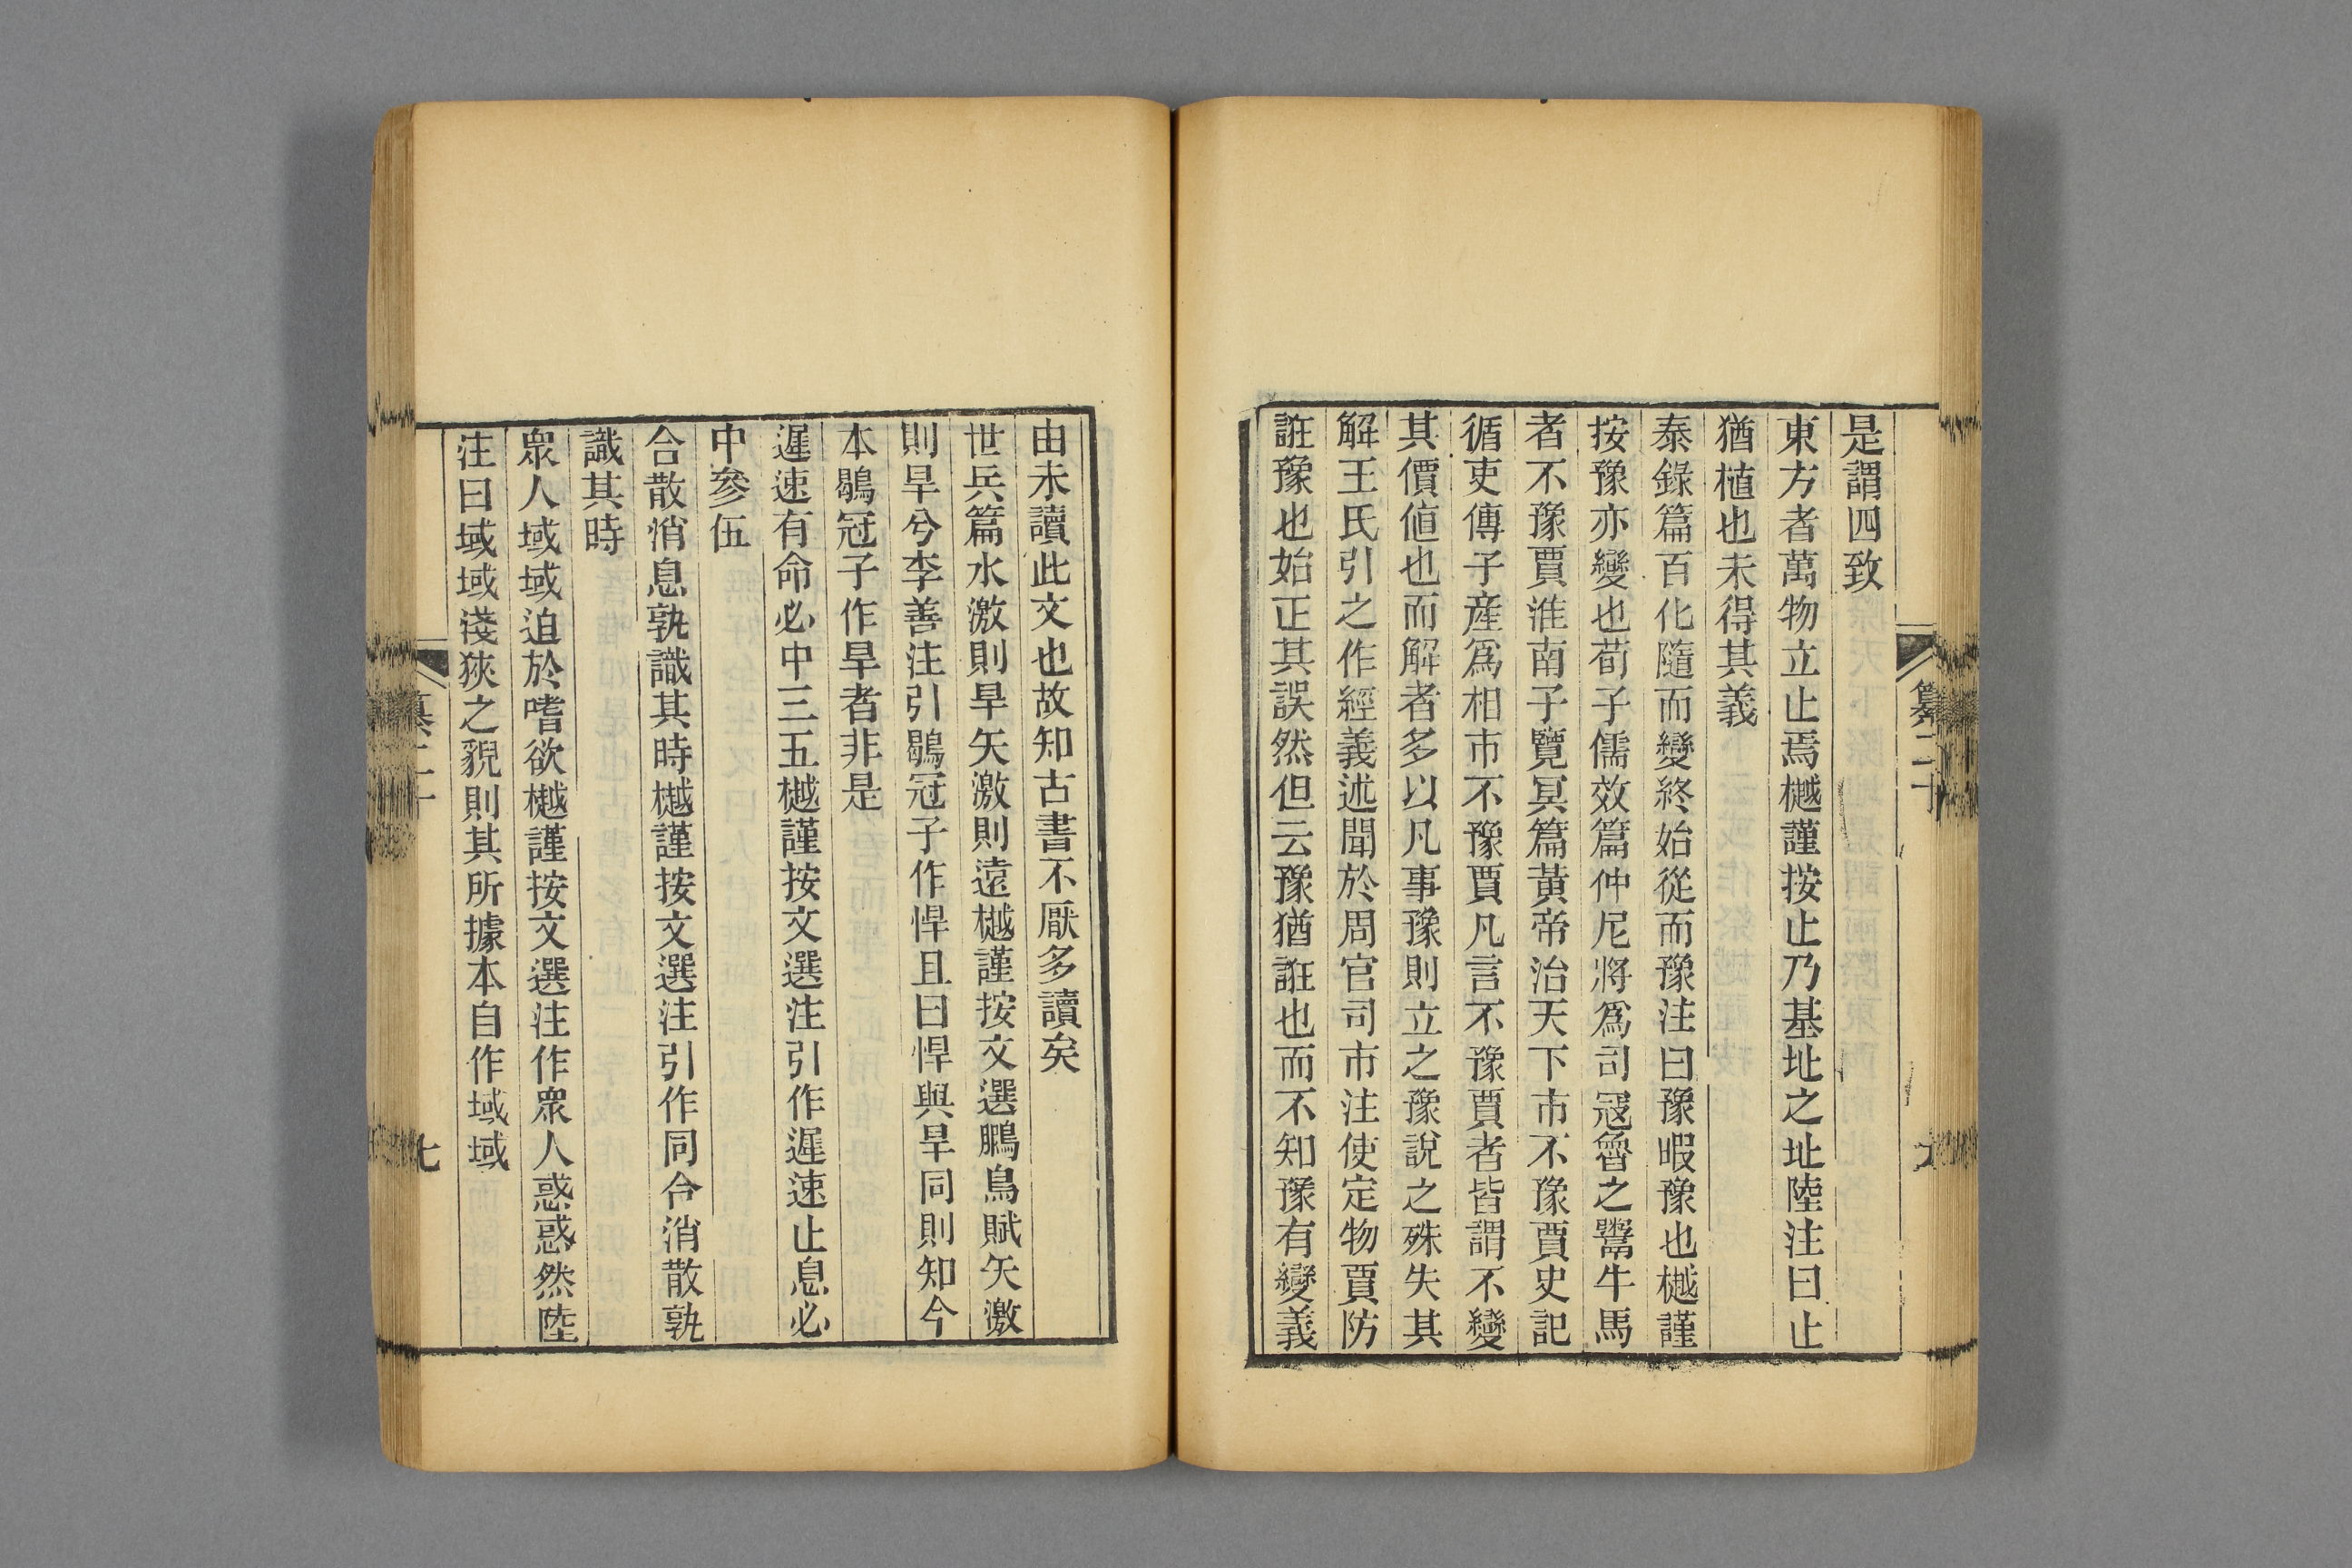 是謂四致
東方者萬物立止焉樾謹按止乃基址之址陸注曰止
猶植也未得其義
泰錄篇百化隨而變終始從而豫注曰豫暇豫也樾謹
按豫亦變也荀子儒效篇仲尼將爲司寇魯之鬻牛馬
者不豫賈淮南子覽冥篇黃帝治天下市不豫賈史記
循吏傳子產爲相市不豫賈凡言不豫賈者皆謂不變
其價値也而解者多以凡事豫則立之豫說之殊失其
解王氏引之作經義述聞於周官司市注使定物賈防
誑豫也始正其誤然但云豫猶誑也而不知豫有變義
由未讀此文也故知古書不厭多讀矣
世兵篇水激則旱矢激則遠樾謹按文選鵩鳥賦矢激
則旱兮李善注引鶡冠子作悍且曰悍與旱同則知今
本鶡冠子作旱者非是
遲速有命必中三五樾謹按文選注引作遲速止息必
中參伍
合散消息孰識其時樾謹按文選注引作同合消散孰
識其時
眾人域域迫於嗜欲樾謹按文選注作眾人惑惑然陸
注曰域域淺狹之貌則其所據本自作域域
纂二十
七